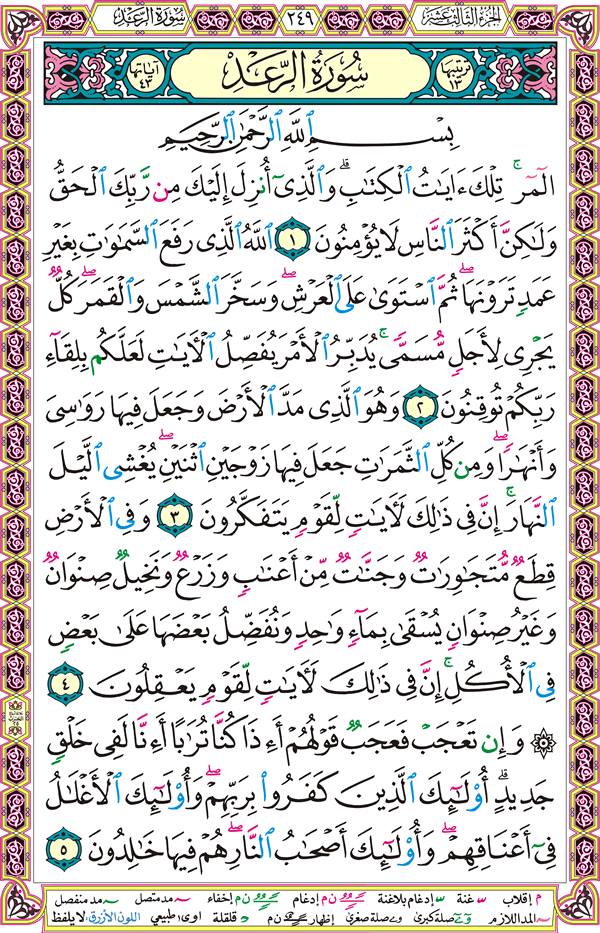 الجزء الثالث عشر ٢٤٩ سورة الرعد
ترتيبها ١٣ سُورَةُ الرَّعْدِ آياتها ٤٣
بِسْمِ ٱللَّهِ ٱلرَّحْمَٰنِ ٱلرَّحِيمِ
الٓمٓرۚ تِلْكَ ءَايَٰتُ ٱلْكِتَٰبِۗ وَٱلَّذِىٓ أُنزِلَ إِلَيْكَ مِن رَّبِّكَ ٱلْحَقُّ
وَلَٰكِنَّ أَكْثَرَ ٱلنَّاسِ لَا يُؤْمِنُونَ ١ ٱللَّهُ ٱلَّذِى رَفَعَ ٱلسَّمَٰوَٰتِ بِغَيْرِ
عَمَدٍ تَرَوْنَهَاۖ ثُمَّ ٱسْتَوَىٰ عَلَى ٱلْعَرْشِۖ وَسَخَّرَ ٱلشَّمْسَ وَٱلْقَمَرَۖ كُلٌّ
يَجْرِى لِأَجَلٍ مُّسَمًّىۚ يُدَبِّرُ ٱلْأَمْرَ يُفَصِّلُ ٱلْءَايَٰتِ لَعَلَّكُم بِلِقَآءِ
رَبِّكُمْ تُوقِنُونَ ٢ وَهُوَ ٱلَّذِى مَدَّ ٱلْأَرْضَ وَجَعَلَ فِيهَا رَوَٰسِىَ
وَأَنْهَٰرًاۖ وَمِن كُلِّ ٱلثَّمَرَٰتِ جَعَلَ فِيهَا زَوْجَيْنِ ٱثْنَيْنِۖ يُغْشِى ٱلَّيْلَ
ٱلنَّهَارَۚ إِنَّ فِى ذَٰلِكَ لَءَايَٰتٍ لِّقَوْمٍ يَتَفَكَّرُونَ ٣ وَفِى ٱلْأَرْضِ
قِطَعٌ مُّتَجَٰوِرَٰتٌ وَجَنَّٰتٌ مِّنْ أَعْنَٰبٍ وَزَرْعٌ وَنَخِيلٌ صِنْوَانٌ
وَغَيْرُ صِنْوَانٍ يُسْقَىٰ بِمَآءٍ وَٰحِدٍ وَنُفَضِّلُ بَعْضَهَا عَلَىٰ بَعْضٍ
فِى ٱلْأُكُلِۚ إِنَّ فِى ذَٰلِكَ لَءَايَٰتٍ لِّقَوْمٍ يَعْقِلُونَ ٤
۞ وَإِن تَعْجَبْ فَعَجَبٌ قَوْلُهُمْ أَءِذَا كُنَّا تُرَٰبًا أَءِنَّا لَفِى خَلْقٍ
جَدِيدٍۗ أُو۟لَٰٓئِكَ ٱلَّذِينَ كَفَرُوا۟ بِرَبِّهِمْۖ وَأُو۟لَٰٓئِكَ ٱلْأَغْلَٰلُ
فِىٓ أَعْنَاقِهِمْۖ وَأُو۟لَٰٓئِكَ أَصْحَٰبُ ٱلنَّارِۖ هُمْ فِيهَا خَٰلِدُونَ ٥
م إقلاب غنة إدغام بلاغنة ن م إدغام ن م إخفاء مد متصل مد منفصل
المد اللازم صلة كبرى صلة صغرى إظهار ن م قلقلة اوى: طبيعي اللون الأزرق: لا يلفظ